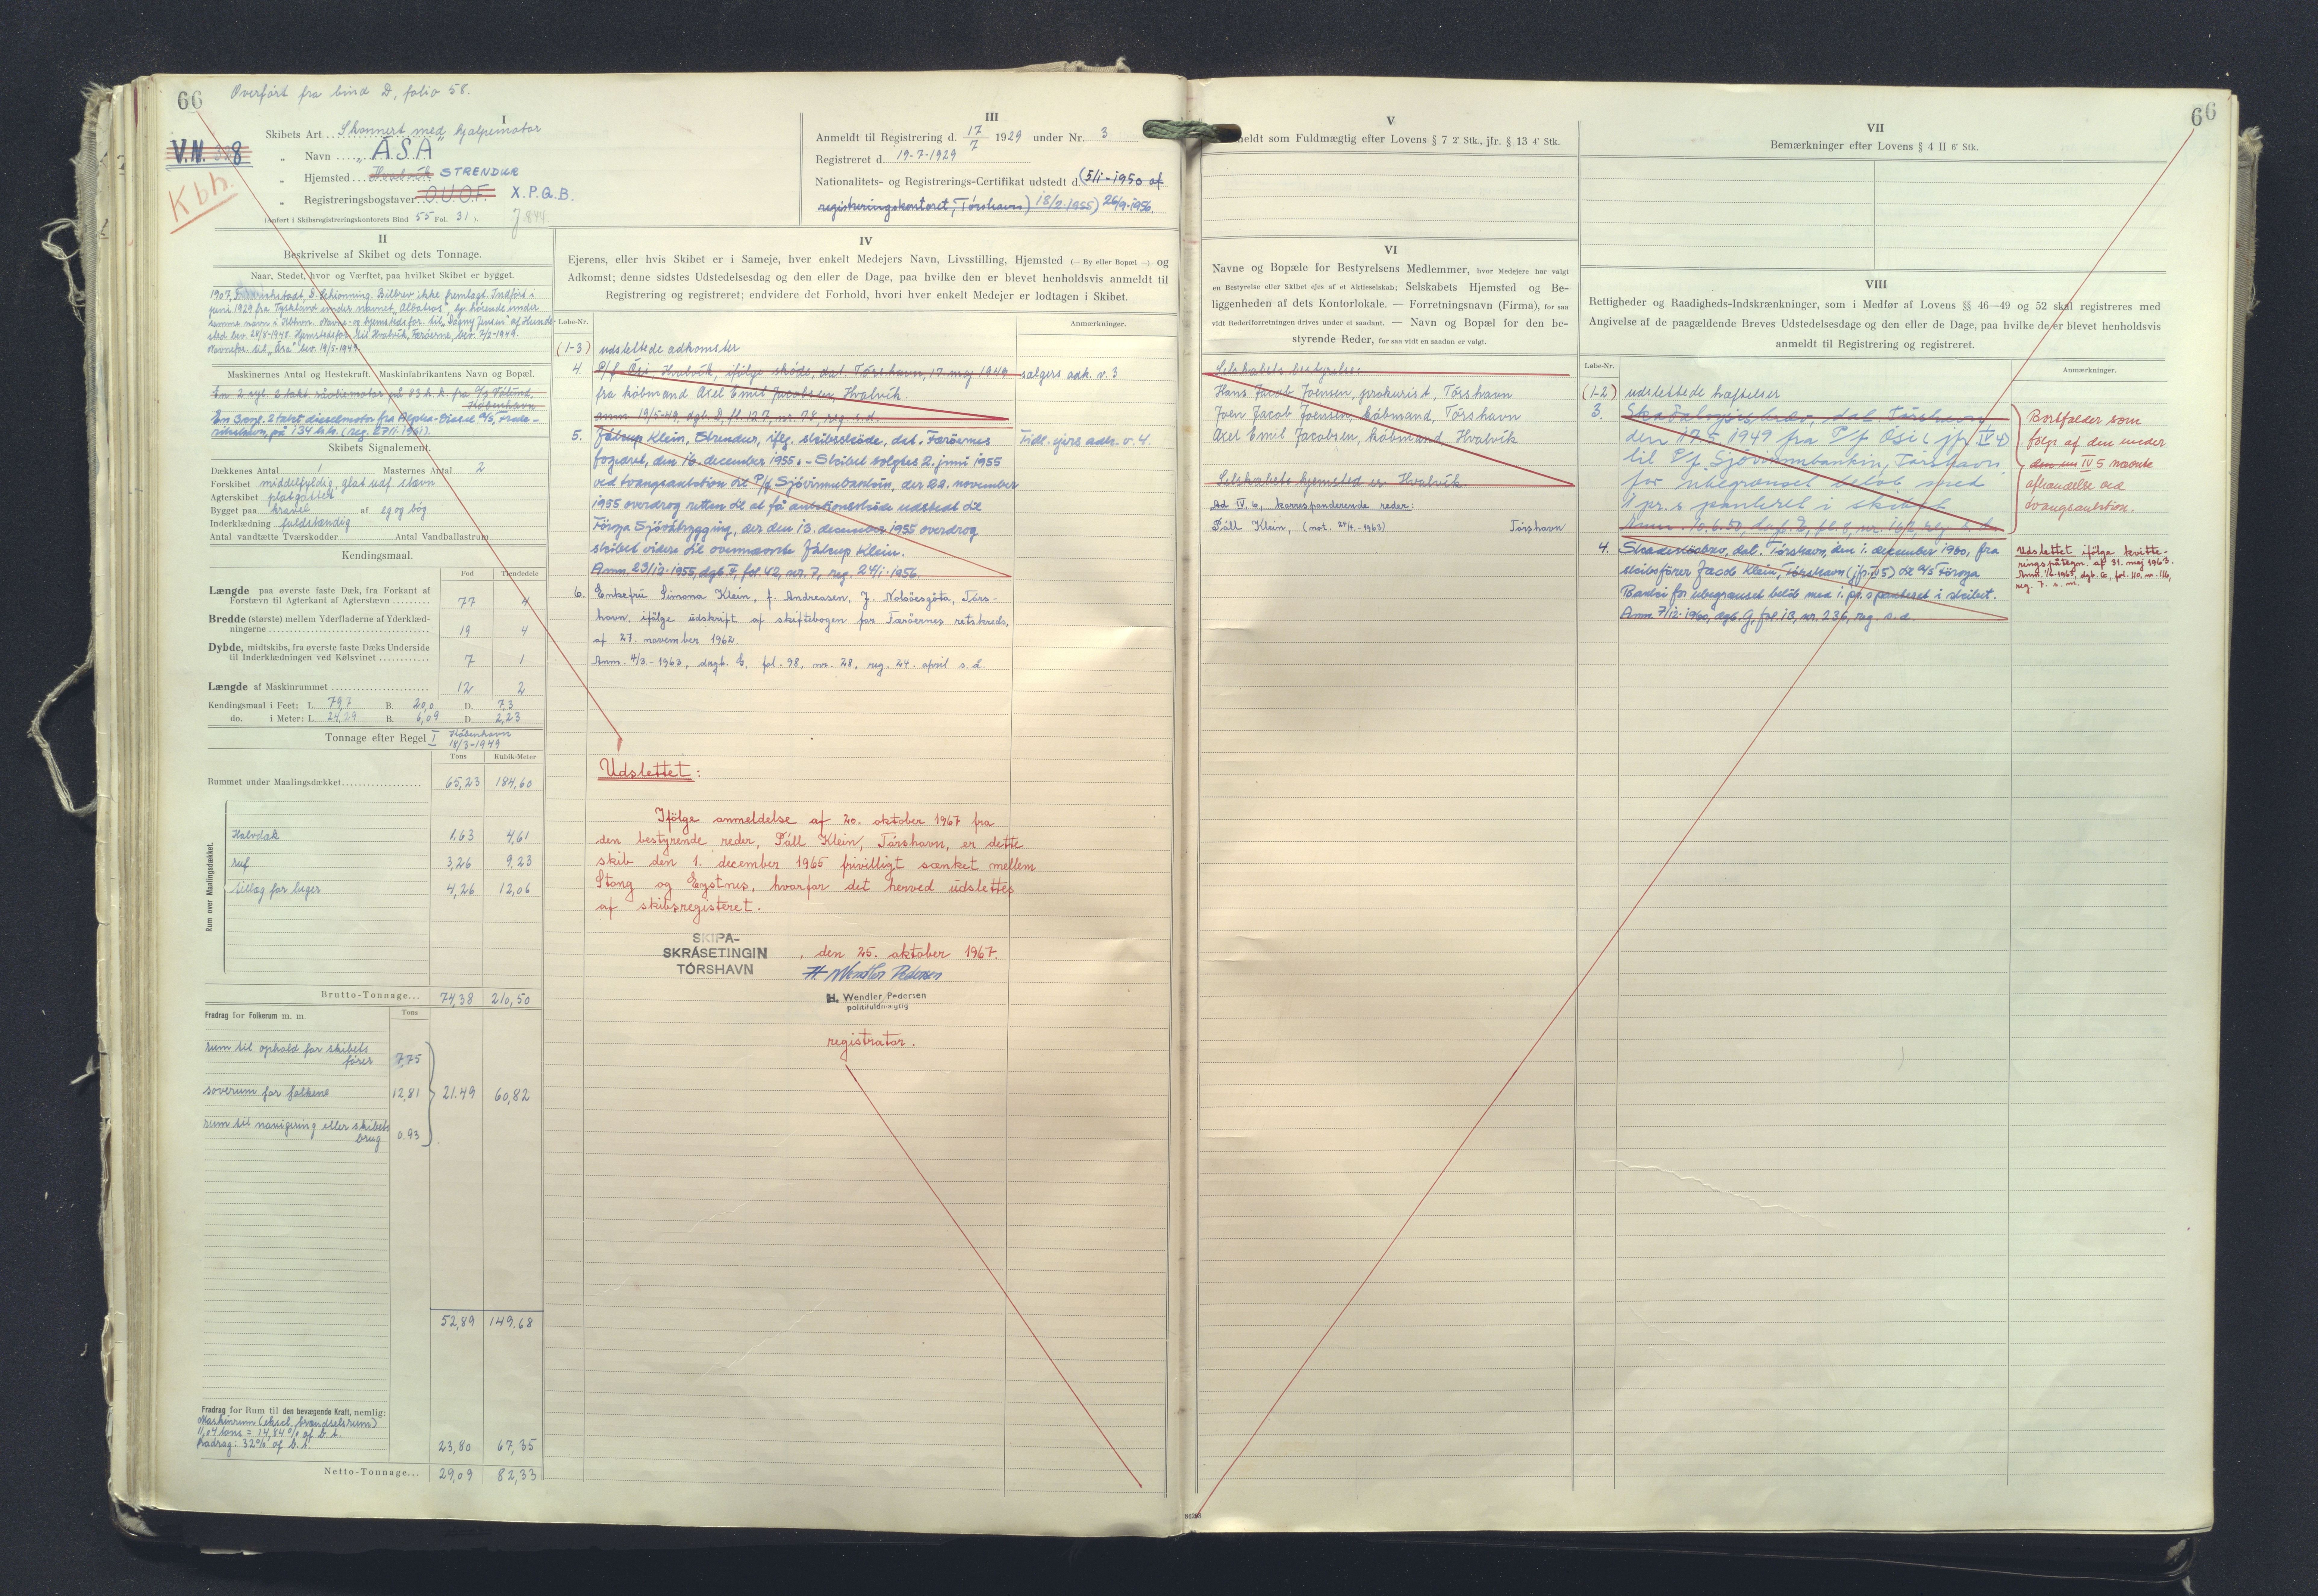 66
Overført fra bind D, folio 58.
V.N. 8
Kbh.
I
Skibets Art Skonnert med hjælpemotor
„ Navn „ÁSA"
„ Hjemsted Hvalvík STRENDUR
„ Registreringsbogstaver O.U.O.F. X.P.Q.B.
(Anført i Skibsregistreringskontorets Bind 55 Fol. 31).
III
Anmeldt til Registrering d. 17/7 1929 under Nr. 3
Registreret d. 19-7-1929
Nationalitets- og Registrerings-Certifikat udstedt d. (5/1-1950 af
registreringskontoret, Tórshavn) 18/2-1955) 26/9-1956.
II
Beskrivelse af Skibet og dets Tonnage.
Naar, Stedet, hvor og Værftet, paa hvilket Skibet er bygget.
1907, S. Schionning. Bilbrev ikke fremlagt. Indført i
juni 1929 fra Tyskland under navnet „Albatros", hjemhørende under
samme navn i Kbhvn. Navne- og hjemstedsfor. til „Dagny Jensen" af Hunde-
sted bev. 20/8-1948. Hjemstedsfor. til Hvalvík, Færøerne, bev. 7/2-1949.
Navnefor. til „Ása" bev. 19/5-1949
Maskinernes Antal og Hestekraft. Maskinfabrikantens Navn og Bopæl.
En 2 cyl. 2 takt råoliemotor på 83 h.k. fra A/S Vølund,
København
En 3 cyl. 2 takt dieselmotor fra Alpha-Diesel A/S, Frede-
rikshavn, på 134 h.k. (reg. 27/1-1961).
Skibets Signalement.
Dækkenes Antal 1 Masternes Antal 2
Forskibet middelfyldig, glat udf. stævn
Agterskibet platgattet
Bygget paa kravel af eg og bøg
Inderklædning fuldstændig
Antal vandtætte Tværskodder Antal Vandballastrum
Kendingsmaal.
Fod Tiendedele
Længde paa øverste faste Dæk, fra Forkant af
Forstævn til Agterkant af Agterstævn 77 4
Bredde (største) mellem Yderfladerne af Yderklæd-
ningerne 19 4
Dybde, midtskibs, fra øverste faste Dæks Underside
til Inderklædningen ved Kølsvinet 7 1
Længde af Maskinrummet 12 2
Kendingsmaal i Feet: L. 79,7 B. 20,0 D. 7,3
do. i Meter: L. 24,29 B. 6,09 D. 2,23
Tonnage efter Regel I København
18/3-1949
Tons Kubik-Meter
Rummet under Maalingsdækket 65,23 184,60
Rum over Maalingsdækket.
Halvdæk 1,63 4,61
ruf 3,26 9,23
tillæg for luger 4,26 12,06
Brutto-Tonnage... 74,38 210,50
Fradrag for Folkerum m. m. Tons
rum til ophold for skibets
fører 7,75
soverum for folkene 12,81 21.49 60,82
rum til navigering eller skibets
brug 0.93
52,89 149.68
Fradrag for Rum til den bevægende Kraft, nemlig:
Maskinrum (ekscl. brændselsrum)
11,04 tons = 14,84% af b.t.
Fradrag: 32% af b.t. 23,80 67,35
Netto-Tonnage... 29,09 82,33
IV
Ejerens, eller hvis Skibet er i Sameje, hver enkelt Medejers Navn, Livsstilling, Hjemsted (— By eller Bopæl —) og
Adkomst; denne sidstes Udstedelsesdag og den eller de Dage, paa hvilke den er blevet henholdsvis anmeldt til
Registrering og registreret; endvidere det Forhold, hvori hver enkelt Medejer er lodtagen i Skibet.
Løbe-Nr. Anmærkninger.
(1-3) udslettede adkomster
4. P/f Ósi, Hvalvík, ifølge skøde, dat. Tórshavn, 17 maj 1949 sælgers adk. v. 3
fra købmand Axel Emil Jacobsen, Hvalvík.
Anm. 19/5-49, dgb. D, fl. 127, nr. 78, reg. s.d.
5. Jákup Klein, Strendur, iflg. skibsskøde, dat. Færøernes Tidl. ejers adk. v. 4.
fogedret, den 16. december 1955. – Skibet solgtes 2. juni 1955
ved tvangsauktion til P/f Sjóvinnubankin, der 29. november
1955 overdrog retten til at få auktionsskøde udstedt til
Føroya Sjóvátrygging, der den 13. december 1955 overdrog
skibet videre til ovennævnte Jákup Klein.
Anm. 23/12-1955, dgb. F, fol. 42, nr. 7, reg. 24/1-1956.
6. Enkefrú Simona Klein, f. Andreasen, J. Nolsöesgøta, Tórs-
havn, ifølge udskrift af skiftebogen for Færøernes retskreds,
af 27. november 1962.
Anm. 4/3-1963, dagb. G, fol. 98, nr. 28, reg. 24. april s.å.
Udslettet:
Ifølge anmeldelse af 20. oktober 1967 fra
den bestyrende reder, Páll Klein, Tórshavn, er dette
skib den 1. december 1965 frivilligt sænket mellem
Stong og Eystnes, hvorfor det herved udslettes
af skibsregisteret.
SKIPA-
SKRÁSETINGIN
TÓRSHAVN
, den 25. oktober 1967.
H. Wendler Pedersen
H. Wendler Pedersen
politifuldmægtig
registrator.
66
V
Anmeldt som Fuldmægtig efter Lovens § 7 2' Stk., jfr. § 13 4' Stk.
VII
Bemærkninger efter Lovens § 4 II 6' Stk.
VI
Navne og Bopæle for Bestyrelsens Medlemmer, hvor Medejere har valgt
en Bestyrelse eller Skibet ejes af et Aktieselskab; Selskabets Hjemsted og Be-
liggenheden af dets Kontorlokale. — Forretningsnavn (Firma), for saa
vidt Rederiforretningen drives under et saadant. — Navn og Bopæl for den be-
styrende Reder, for saa vidt en saadan er valgt.
Selskabets bestyrelse:
Hans Jacob Joensen, prokurist, Tórshavn
Joen Jacob Joensen, købmand, Tórshavn
Axel Emil Jacobsen, købmand Hvalvík
Selskabets hjemsted er Hvalvík.
Ad IV. 6, korresponderende reder:
Páll Klein, (not. 24/4-1963) Tórshavn
VIII
Rettigheder og Raadigheds-Indskrænkninger, som i Medfør af Lovens §§ 46—49 og 52 skal registreres med
Angivelse af de paagældende Breves Udstedelsesdage og den eller de Dage, paa hvilke de er blevet henholdsvis
anmeldt til Registrering og registreret.
Løbe-Nr. Anmærkninger.
(1-2) udslettede hæftelser
3. Skadesløsbrev, dat. Tórshavn
den 17.5 1949 fra P/f Ósi (jfr. IV 4)
til P/f Sjóvinnubankin, Tórshavn
for ubegrænset beløb med
1 pr. s. panteret i skibet
Bortfalder som
følge af den under
IV 5 nævnte
afhændelse ved
tvangsauktion.
4. Skadesløsbrev, dat. Tórshavn, den 1. december 1960, fra
skibsfører Jacob Klein, Tórshavn (jfr. IV 5) til A/S Føroya
Banki for ubegrænset beløb med 1. pr. s panteret i skibet.
Anm. 7/12-1960, dgb. G, fol. 18, nr. 236, reg. s.d.
Udslettet ifølge kvitte-
ringspåtegn. af 31. maj 1963.
Anm. 1/6-1963, dgb. G, fol. 110, nr. 116,
reg. 7. s.m.